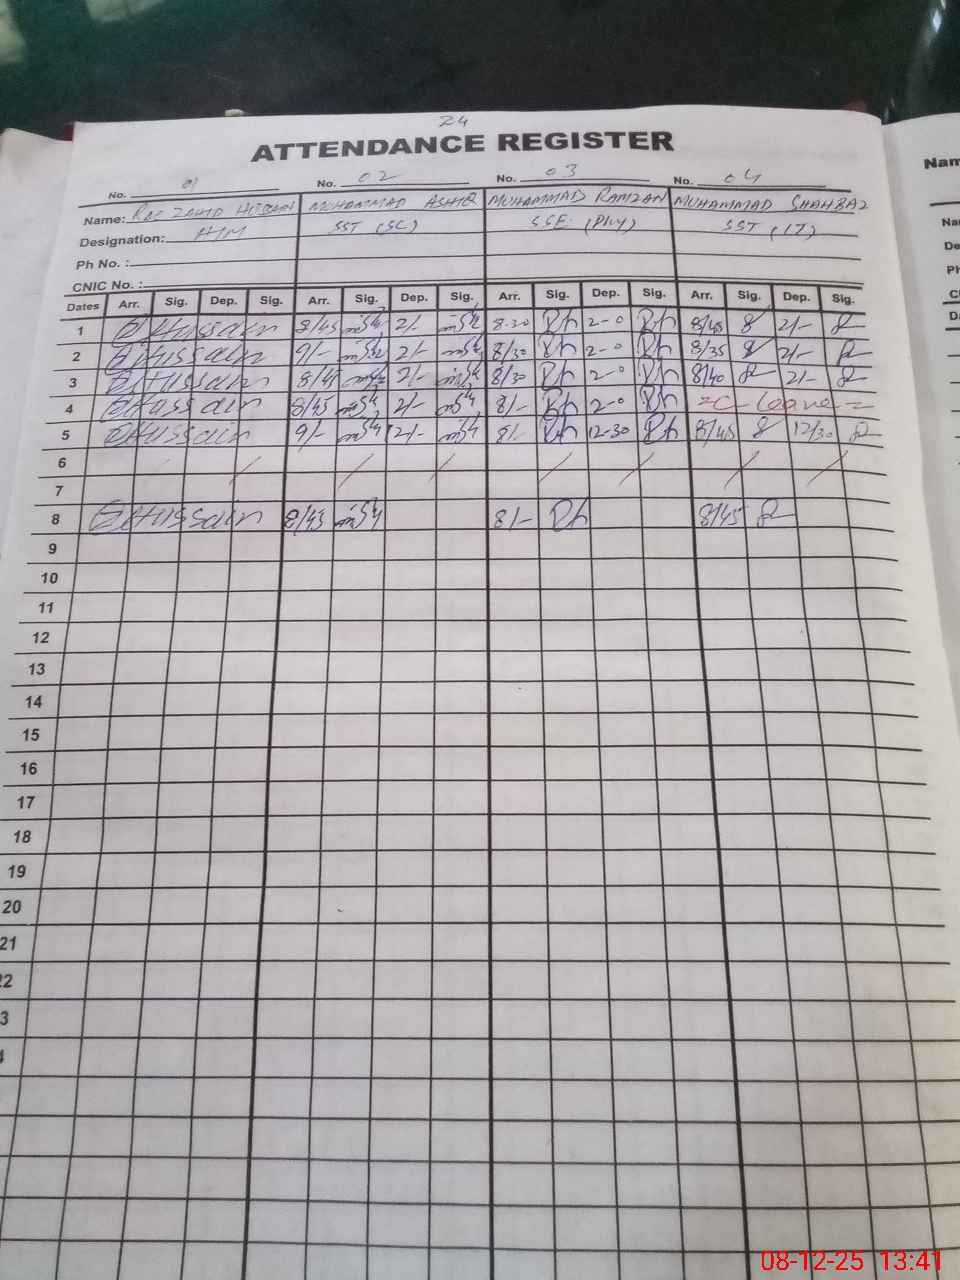 24
ATTENDANCE REGISTER
No. 01 No. 02 No. 03 No. 04
Name: RAE ZAHID HUSSAIN MUHAMMAD ASHIQ MUHAMMAD RAMZAN MUHAMMAD SHAHBAZ
Designation: H/M SST (SC) SSE (Phy) SST (IT)
Ph No. :
CNIC No. :
Dates Arr. Sig. Dep. Sig. Arr. Sig. Dep. Sig. Arr. Sig. Dep. Sig. Arr. Sig. Dep. Sig.
1 Hussain 8/45 2/- 8-30 2-0 8/45 2/-
2 Hussain 9/- 2/- 8/30 2-0 8/35 2/-
3 Hussain 8/45 2/- 8/30 2-0 8/40 2/-
4 Hussain 8/45 2/- 8/- 2-0 =C-leave=
5 Hussain 9/- 2/- 8/- 12-30 8/45 12/30
6
7
8 Hussain 8/45 8/- 8/45
9
10
11
12
13
14
15
16
17
18
19
20
21
22
3
4
Nam
Na
De
Ph
C
Da
08-12-25 13:41